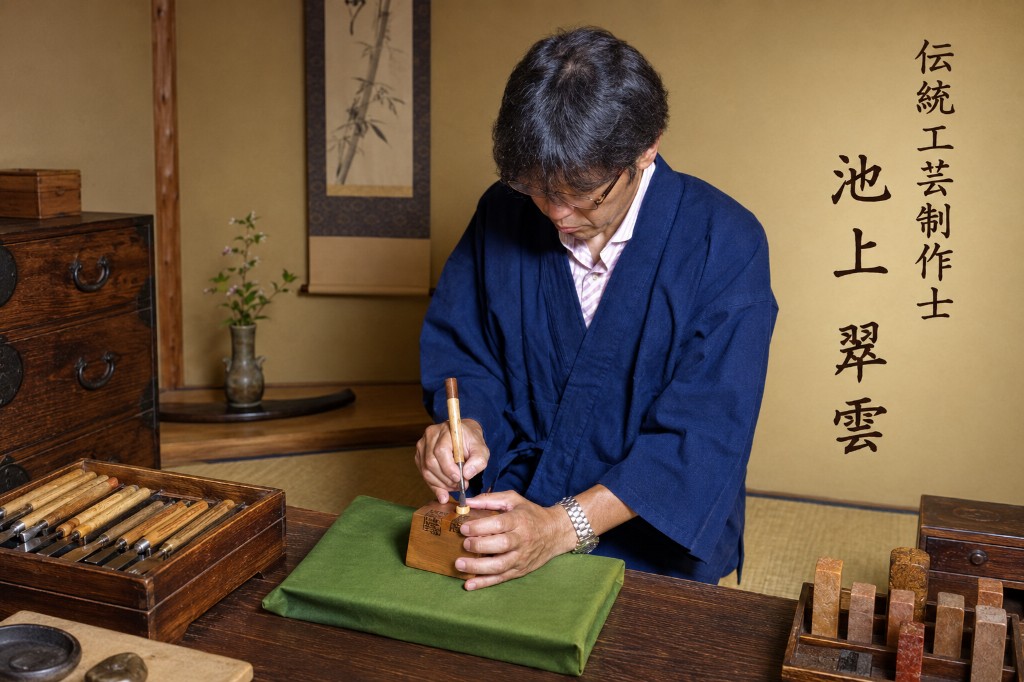 伝統工芸制作士
池上翠雲